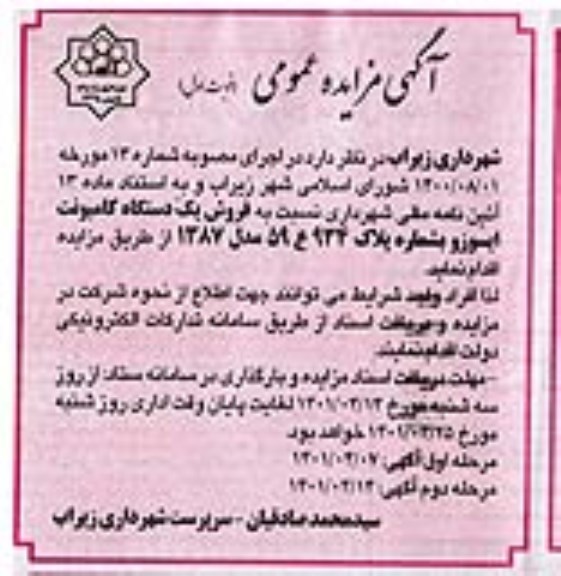 آگهی مزایده عمومی (نوبت اول)
شهرداری زیراب در نظر دارد در اجرای مصوبه شماره ۱۳ مورخه
۱۴۰۰/۰۸/۰۱ شورای اسلامی شهر زیراب و به استناد ماده ۱۳
آئین نامه مالی شهرداری نسبت به فروش یک دستگاه کامیونت
ایسوزو بشماره پلاک ۹۳۴ ع ۵۹ مدل ۱۳۸۷ از طریق مزایده
اقدام نماید.
لذا افراد واجد شرایط می توانند جهت اطلاع از نحوه شرکت در
مزایده و دریافت اسناد از طریق سامانه تدارکات الکترونیکی
دولت اقدام نمایند.
-مهلت دریافت اسناد مزایده و بارگذاری در سامانه ستاد: از روز
سه شنبه مورخ لغایت پایان وقت اداری روز شنبه
مورخ خواهد بود.
مرحله اول آگهی:
مرحله دوم آگهی:
سیدمحمد صادقیان - سرپرست شهرداری زیراب